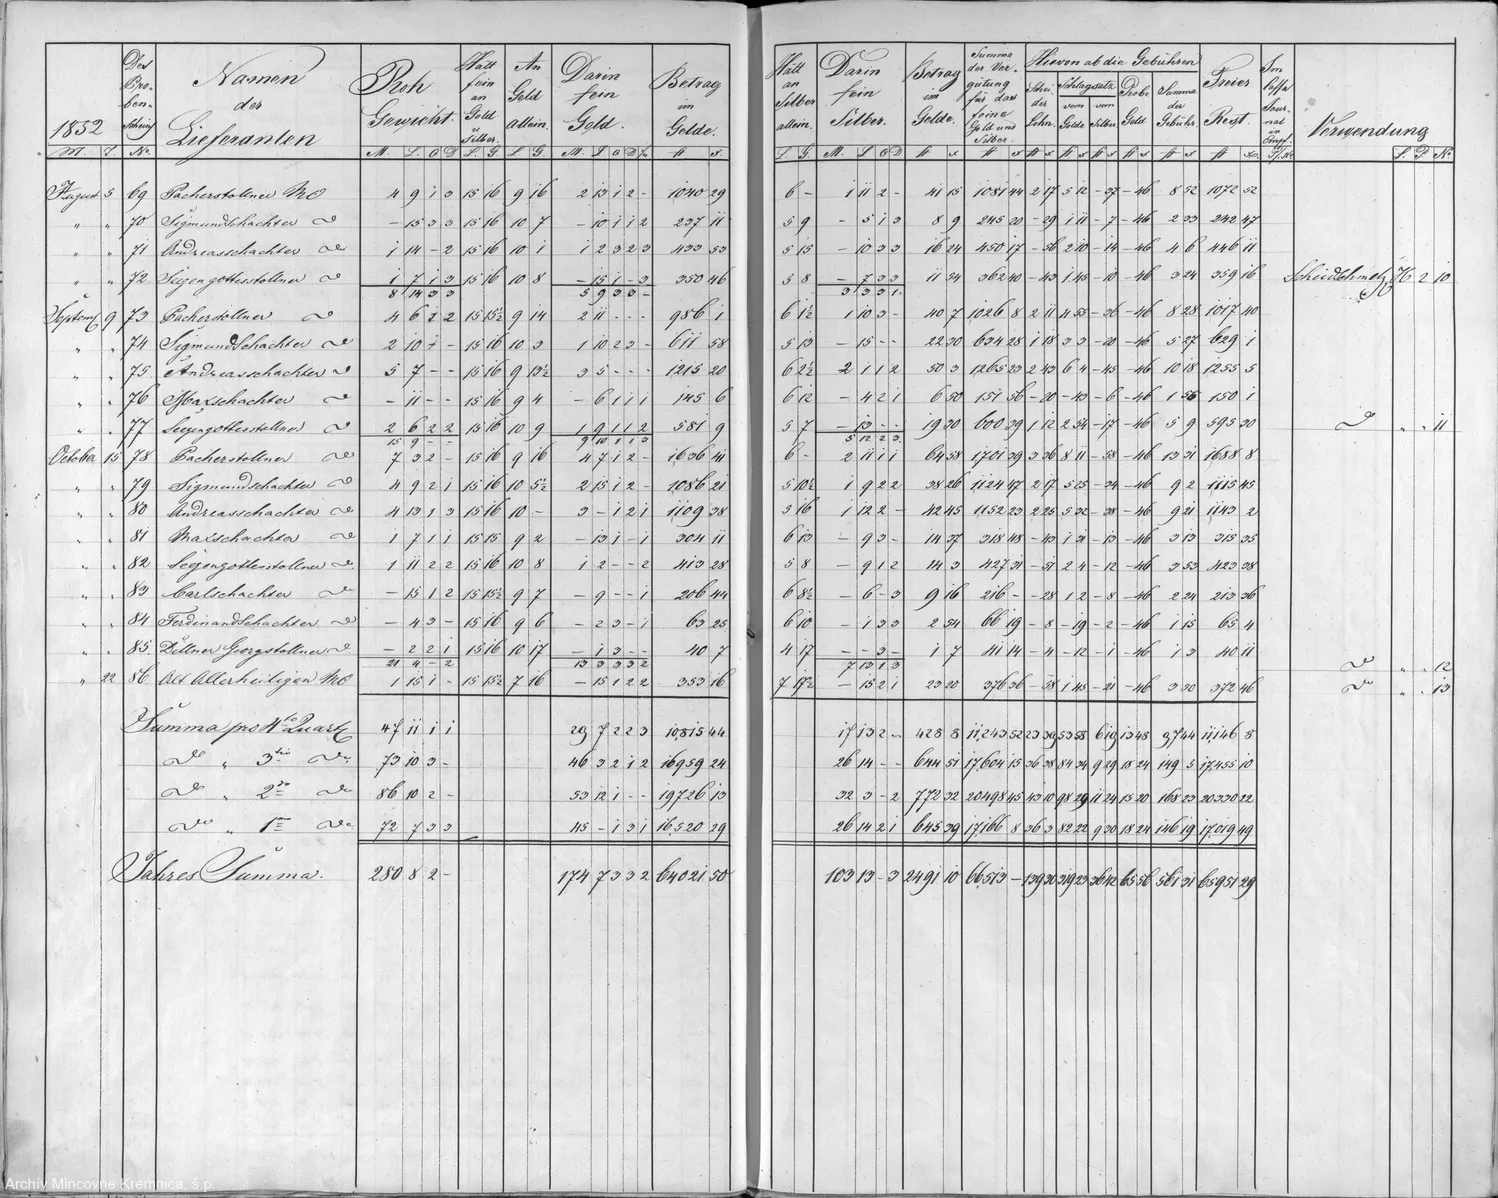 1852
Des Proben-Schein
Namen der Lieferanten
Roh Gewicht.
Halt fein an Gold u Silber.
An Gold allein.
Darin fein Gold.
Betrag im Gelde.
Halt an Silber allein.
Darin fein Silber.
Betrag im Gelde.
Summa der Vergütung für das feine Gold und Silber.
Hievon ab die Gebühren
Scheide Lohn. Schlagsatz vom Golde vom Silber. Probe Geld Summa der Gebühr.
Freier Rest.
Verwendung
M. T. No. M. L. Q D L G L G. M. L Q D f xr L G. M. L Q D
August 5 69 Pacherstollner 4 9 1 3 15 16 9 16 2 13 1 2 - 1040 29 6 - 1 11 2 - 41 15 1081 44 2 17 5 12 - 37 - 46 8 52 1072 52
" " 70 Sigmundschachter do - 15 3 3 15 16 10 7 - 10 1 1 2 237 11 5 9 - 5 1 3 8 9 245 20 - 29 1 11 - 7 - 46 2 33 242 47
" " 71 Andreasschachter do 1 14 - 2 15 16 10 1 1 2 3 2 3 433 53 5 15 - 10 3 3 16 24 450 17 - 56 2 10 - 14 - 46 4 6 446 11
" " 72 Seegengottesstollner do 1 7 1 3 15 16 10 8 - 15 1 - 3 350 46 5 8 - 7 3 3 11 54 362 40 - 43 1 45 - 10 - 46 3 24 359 16 Scheidschmelz 76 2 10
8 14 3 3 5 9 3 3 - 3 3 3 1
Septemb 9 73 Pacherstollner do 4 6 2 2 15 15½ 9 14 2 11 - - - 986 1 6 1½ 1 10 3 - 40 7 1026 8 2 11 4 55 - 36 - 46 8 28 1017 40
" " 74 Sigmundschachter do 2 10 1 - 15 16 10 3 1 10 2 3 - 611 58 5 13 - 15 - - 22 30 634 28 1 18 3 3 - 20 - 46 5 27 629 1
" " 75 Andreasschachter do 5 7 - - 15 16 9 13½ 3 5 - - - 1215 20 6 2½ 2 1 1 2 50 3 1265 23 2 43 6 4 - 45 - 46 10 18 1255 5
" " 76 Maxschachter do - 11 - - 15 16 9 4 - 6 1 1 1 145 6 6 12 - 4 2 1 6 50 151 56 - 20 - 43 - 6 - 46 1 55 150 1
" " 77 Seegengottesstollner do 2 6 2 2 15 16 10 9 1 9 1 1 2 581 9 5 7 - 13 - - 19 30 600 39 1 12 2 54 - 17 - 46 5 9 595 30 do " " 11
15 9 - - 9 10 1 1 3 5 12 2 3
October 15 78 Pacherstollner do 7 3 2 - 15 16 9 16 4 7 1 2 - 1636 41 6 - 2 11 1 1 64 58 1701 39 3 36 8 11 - 58 - 46 13 31 1688 8
" " 79 Sigmundschachter do 4 9 2 1 15 16 10 5½ 2 15 1 2 - 1086 21 5 10½ 1 9 2 2 38 26 1124 47 2 17 5 25 - 34 - 46 9 2 1115 45
" " 80 Andreasschachter do 4 13 1 3 15 16 10 - 3 - 1 2 1 1109 38 5 16 1 12 2 - 42 45 1152 23 2 25 5 32 - 38 - 46 9 21 1143 2
" " 81 Maxschachter do 1 7 1 1 15 15 9 2 - 13 1 - 1 304 11 6 13 - 9 3 - 14 37 318 48 - 43 1 31 - 13 - 46 3 13 315 35
" " 82 Seegengottesstollner do 1 11 2 2 15 16 10 8 1 2 - - 2 413 28 5 8 - 9 1 2 14 3 427 31 - 51 2 4 - 12 - 46 3 53 423 38
" " 83 Carlschachter do - 15 1 2 15 15½ 9 7 - 9 - - 1 206 44 6 8½ - 6 - 3 9 16 216 - - 28 1 2 - 8 - 46 2 24 213 36
" " 84 Ferdinandschachter do - 4 3 - 15 16 9 6 - 2 3 - 1 63 25 6 10 - 1 3 3 2 54 66 19 - 8 - 19 - 2 - 46 1 15 65 4
" " 85. Dillner Georgstollner do - 2 2 1 15 16 10 17 - 1 3 - - 40 7 4 17 - - 3 - 1 7 41 14 - 4 - 12 - 1 - 46 1 3 40 11 do " " 12
21 4 - 2 13 3 3 3 2 7 13 1 3
" 22 86 Alt Allerheiligen 1 15 1 - 15 15½ 7 16 - 15 1 2 2 353 16 7 17½ - 15 2 1 23 20 376 36 - 58 1 45 - 21 - 46 3 50 372 46 do " " 13
Summa pro 4to Quart 47 11 1 1 29 7 2 2 3 10815 44 17 13 2 - 428 8 11,243 52 23 39 53 58 6 19 13 48 97 44 11,146 8
do " 3tio do 73 10 3 - 46 3 2 1 2 16959 24 26 14 - - 644 51 17,604 15 36 38 84 34 9 29 18 24 149 5 17,455 10
do " 2do do 86 10 2 - 53 12 1 - - 19726 13 32 3 - 2 772 32 20498 45 43 10 98 29 11 24 15 20 168 23 20330 22
do " 1mo do 72 7 3 3 45 - 1 3 1 16,520 29 26 14 2 1 645 39 17,166 8 36 3 82 22 9 30 18 24 146 19 17,019 49
Jahres Summa. 280 8 2 - 174 7 3 3 2 64021 50 103 13 - 3 2491 10 66,513 - 139 30 319 23 36 42 65 56 561 31 65951 29
Archív Mincovne Kremnica, š.p.